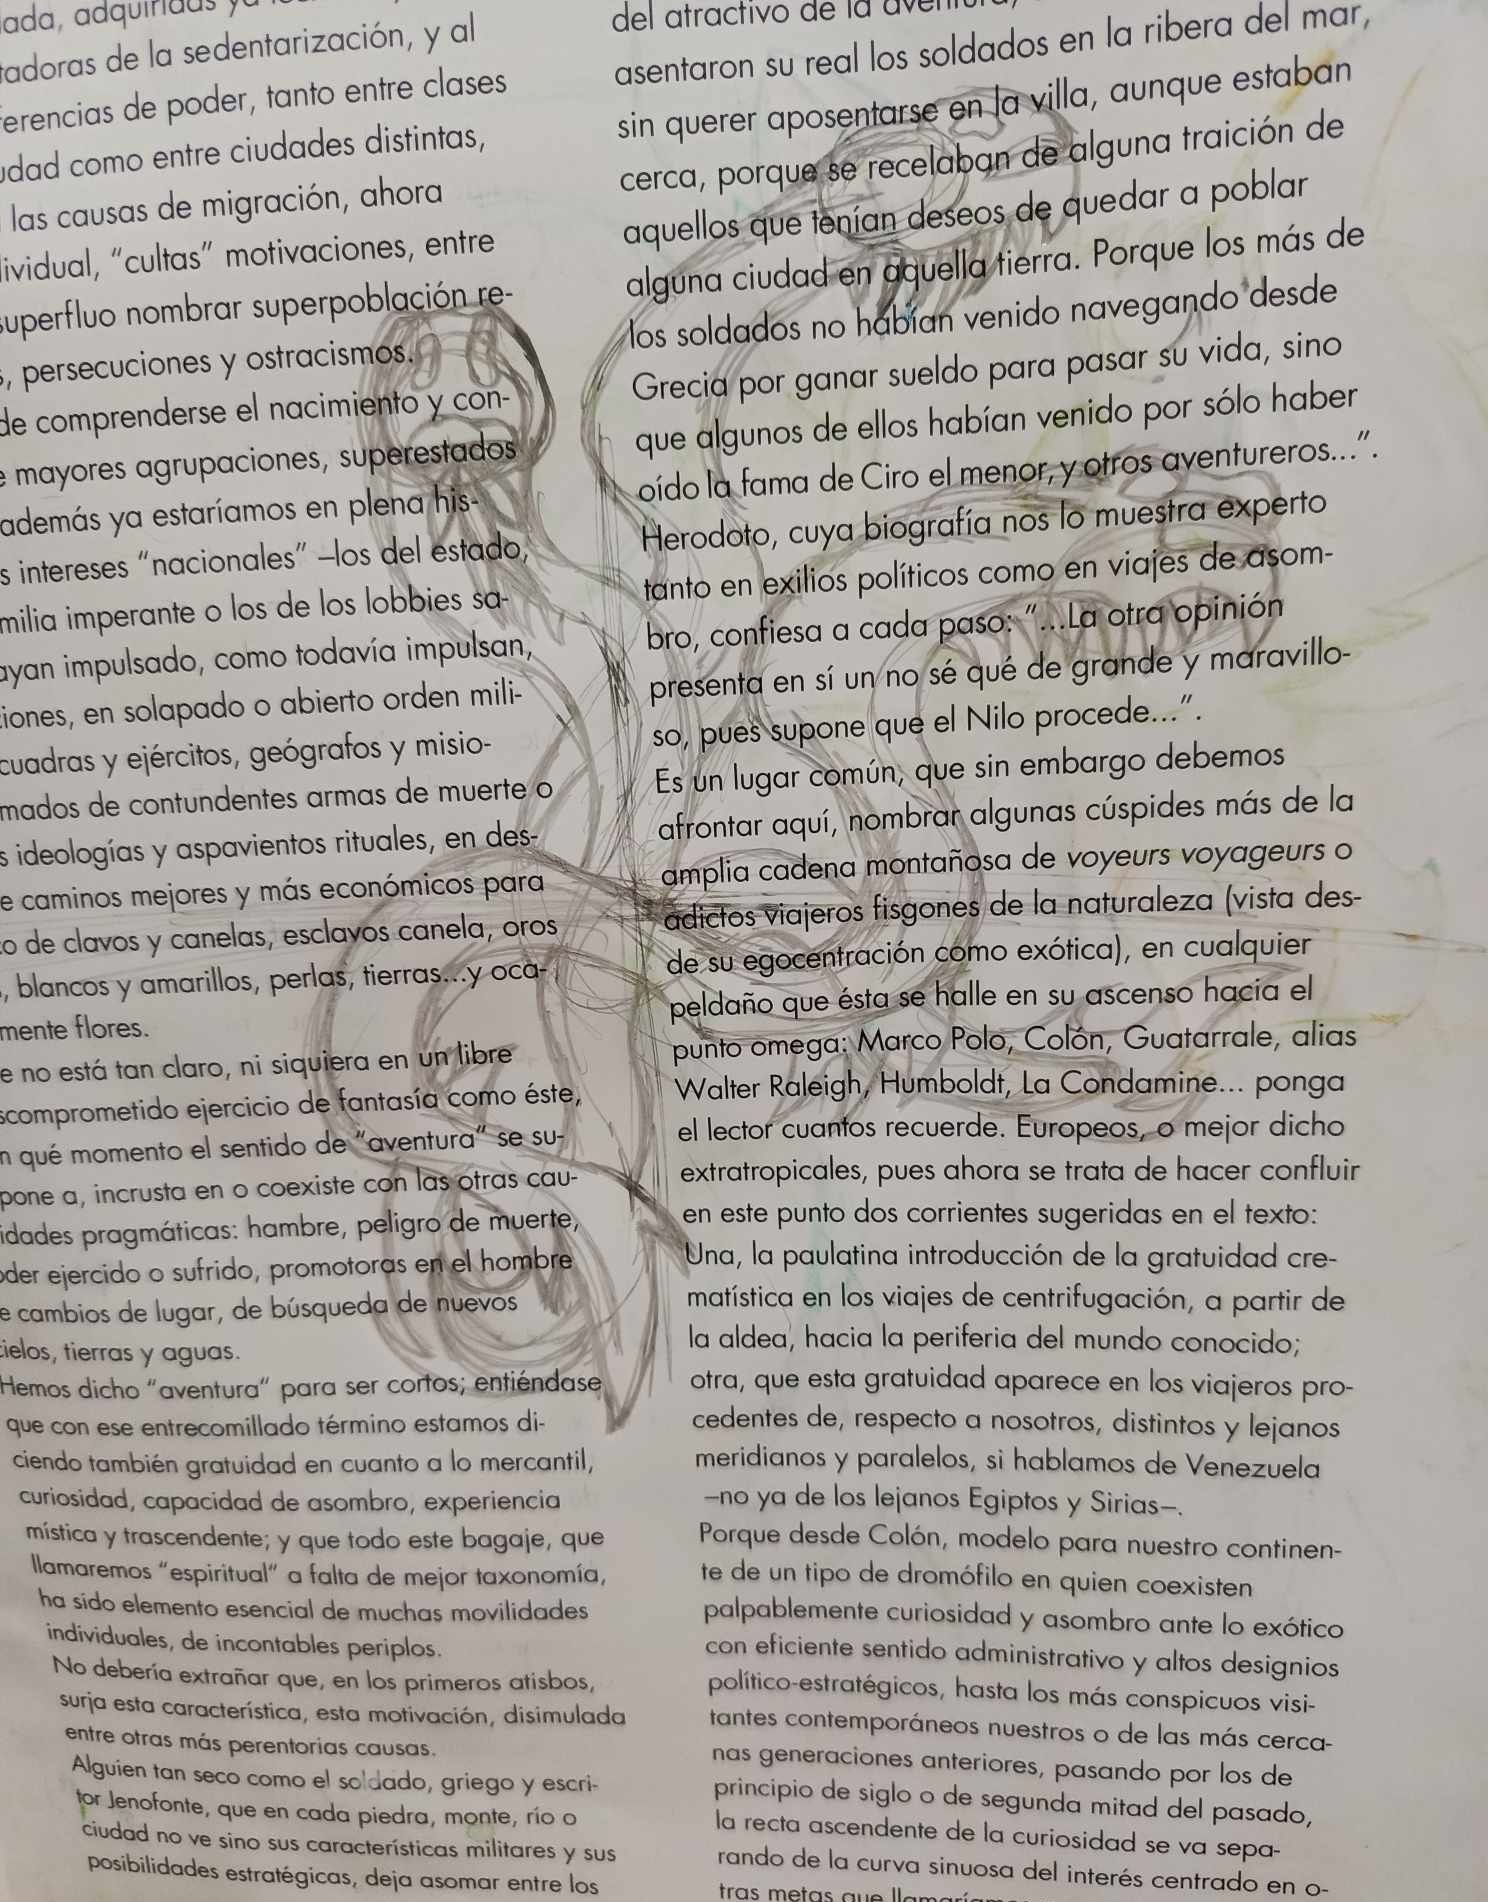 adquiridas
tadoras de la sedentarización, y al
ferencias de poder, tanto entre clases
udad como entre ciudades distintas,
las causas de migración, ahora
dividual, "cultas" motivaciones, entre
superfluo nombrar superpoblación re-
s, persecuciones y ostracismos.
de comprenderse el nacimiento y con-
e mayores agrupaciones, superestados
además ya estaríamos en plena his-
s intereses "nacionales" –los del estado,
milia imperante o los de los lobbies sa-
ayan impulsado, como todavía impulsan,
ciones, en solapado o abierto orden mili-
cuadras y ejércitos, geógrafos y misio-
mados de contundentes armas de muerte o
s ideologías y aspavientos rituales, en des-
e caminos mejores y más económicos para
co de clavos y canelas, esclavos canela, oros
, blancos y amarillos, perlas, tierras...y oca-
mente flores.
e no está tan claro, ni siquiera en un libre
scomprometido ejercicio de fantasía como éste,
n qué momento el sentido de "aventura" se su-
pone a, incrusta en o coexiste con las otras cau-
idades pragmáticas: hambre, peligro de muerte,
oder ejercido o sufrido, promotoras en el hombre
e cambios de lugar, de búsqueda de nuevos
cielos, tierras y aguas.
Hemos dicho "aventura" para ser cortos; entiéndase
que con ese entrecomillado término estamos di-
ciendo también gratuidad en cuanto a lo mercantil,
curiosidad, capacidad de asombro, experiencia
mística y trascendente; y que todo este bagaje, que
llamaremos "espiritual" a falta de mejor taxonomía,
ha sido elemento esencial de muchas movilidades
individuales, de incontables periplos.
No debería extrañar que, en los primeros atisbos,
surja esta característica, esta motivación, disimulada
entre otras más perentorias causas.
Alguien tan seco como el soldado, griego y escri-
tor Jenofonte, que en cada piedra, monte, río o
ciudad no ve sino sus características militares y sus
posibilidades estratégicas, deja asomar entre los
del atractivo de la aventura,
asentaron su real los soldados en la ribera del mar,
sin querer aposentarse en la villa, aunque estaban
cerca, porque se recelaban de alguna traición de
aquellos que tenían deseos de quedar a poblar
alguna ciudad en aquella tierra. Porque los más de
los soldados no habían venido navegando desde
Grecia por ganar sueldo para pasar su vida, sino
que algunos de ellos habían venido por sólo haber
oído la fama de Ciro el menor, y otros aventureros...".
Herodoto, cuya biografía nos lo muestra experto
tanto en exilios políticos como en viajes de asom-
bro, confiesa a cada paso: "...La otra opinión
presenta en sí un no sé qué de grande y maravillo-
so, pues supone que el Nilo procede...".
Es un lugar común, que sin embargo debemos
afrontar aquí, nombrar algunas cúspides más de la
amplia cadena montañosa de voyeurs voyageurs o
adictos viajeros fisgones de la naturaleza (vista des-
de su egocentración como exótica), en cualquier
peldaño que ésta se halle en su ascenso hacia el
punto omega: Marco Polo, Colón, Guatarrale, alias
Walter Raleigh, Humboldt, La Condamine... ponga
el lector cuantos recuerde. Europeos, o mejor dicho
extratropicales, pues ahora se trata de hacer confluir
en este punto dos corrientes sugeridas en el texto:
Una, la paulatina introducción de la gratuidad cre-
matística en los viajes de centrifugación, a partir de
la aldea, hacia la periferia del mundo conocido;
otra, que esta gratuidad aparece en los viajeros pro-
cedentes de, respecto a nosotros, distintos y lejanos
meridianos y paralelos, si hablamos de Venezuela
–no ya de los lejanos Egiptos y Sirias–.
Porque desde Colón, modelo para nuestro continen-
te de un tipo de dromófilo en quien coexisten
palpablemente curiosidad y asombro ante lo exótico
con eficiente sentido administrativo y altos designios
político-estratégicos, hasta los más conspicuos visi-
tantes contemporáneos nuestros o de las más cerca-
nas generaciones anteriores, pasando por los de
principio de siglo o de segunda mitad del pasado,
la recta ascendente de la curiosidad se va sepa-
rando de la curva sinuosa del interés centrado en o-
tras metas que